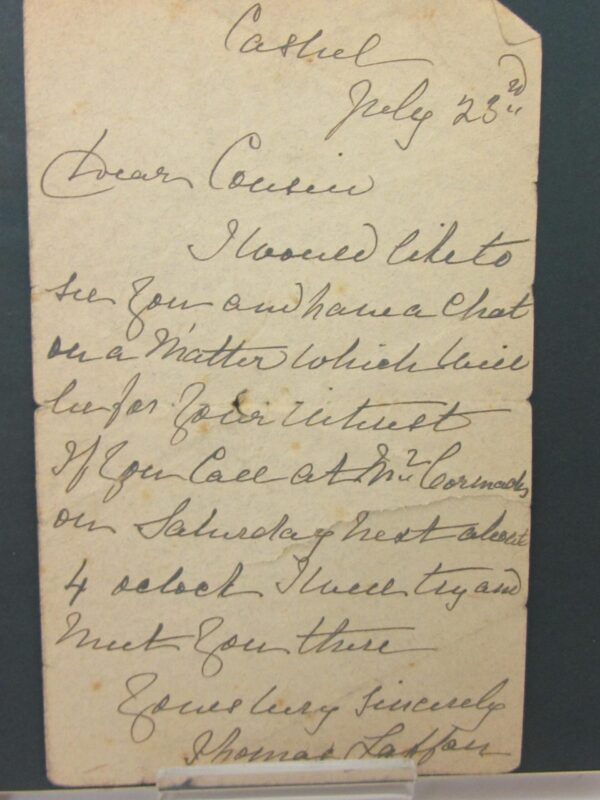 Cashel
July 23rd
Dear Cousin
I would like to
see you and have a chat
on a Matter which will
be for your intrest
If you Call at Mr Cormacks
on Saturday next about
4 oclock I will try and
meet you there
Yours very sincerely
Thomas Laffan